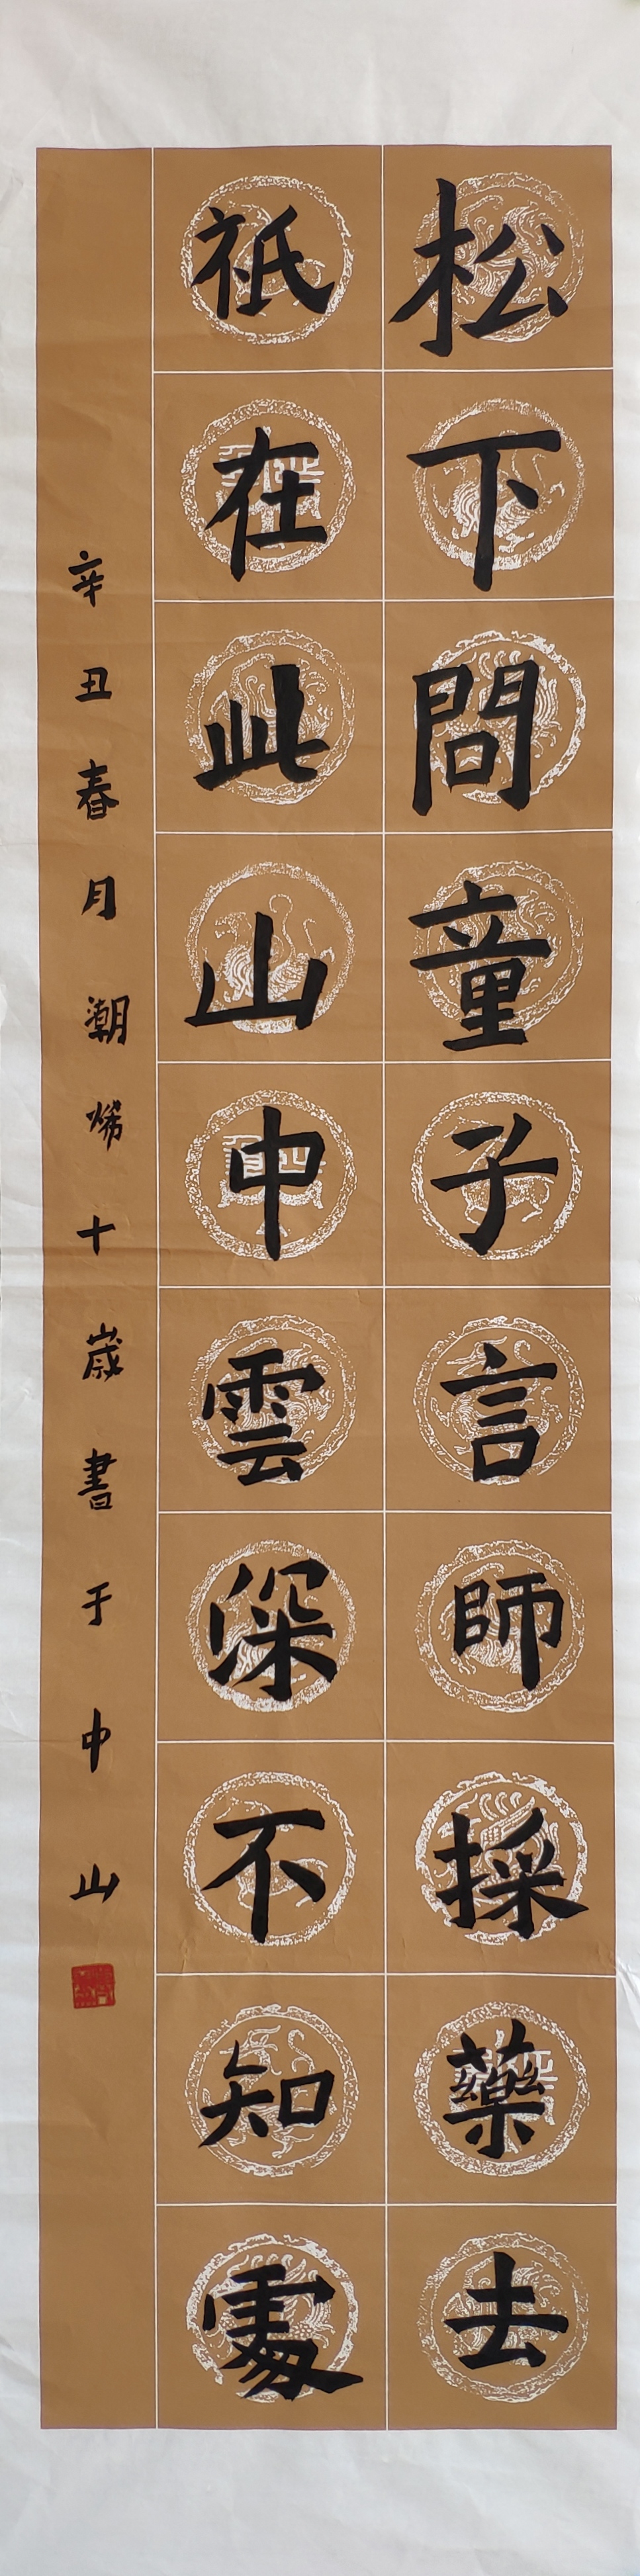 松下問童子言師採藥去
祇在此山中雲深不知處
辛丑春月潮烯十歲書于中山